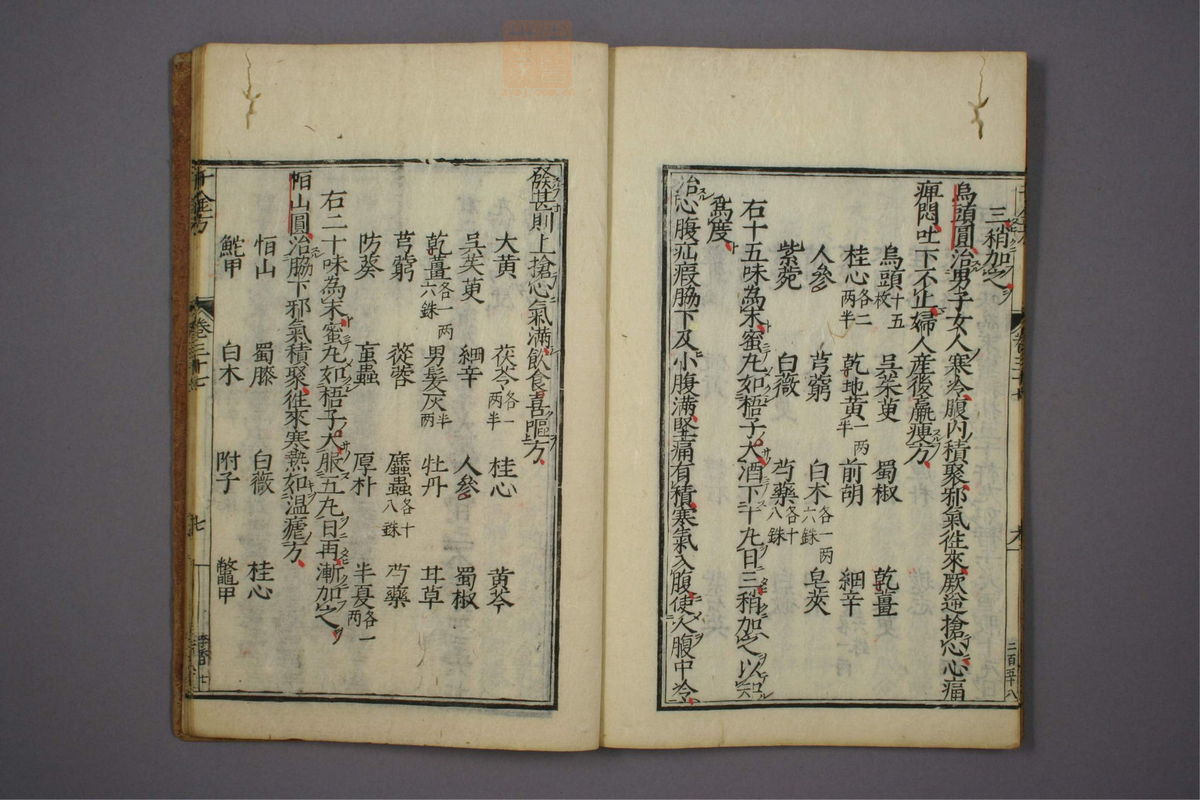 三稍加之
烏頭圓治男子女人寒冷腹內積聚邪氣徃來厥逆搶心心痛
痺悶吐下不止婦人産後羸瘦方
烏頭十五枚 吳茱萸 蜀椒 乾薑
桂心各二兩半 乾地黃一兩半 前胡 細辛
人參 芎藭 白朮各一兩六銖 皂莢
紫菀 白薇 芍藥各十八銖
右十五味為末蜜丸如梧子大酒下十丸日三稍加之以知
爲度
治心腹疝瘕脇下及小腹滿堅痛有積寒氣入腹使人腹中冷
發甚則上搶心氣滿飲食喜嘔方
大黃 茯苓各一兩半 桂心 黃芩
吳茱萸 細辛 人參 蜀椒
乾薑各一兩六銖 男髮灰半兩 牡丹 甘草
芎藭 蓯蓉 䗪蟲各十八銖 芍藥
防葵 蝱蟲 厚朴 半夏各一兩
右二十味為末蜜丸如梧子大服五丸日再漸加之
恒山圓治脇下邪氣積聚徃來寒熱如溫瘧方
恒山 蜀膝 白薇 桂心
鮀甲 白朮 附子 鱉甲
千金方 卷三十七 七